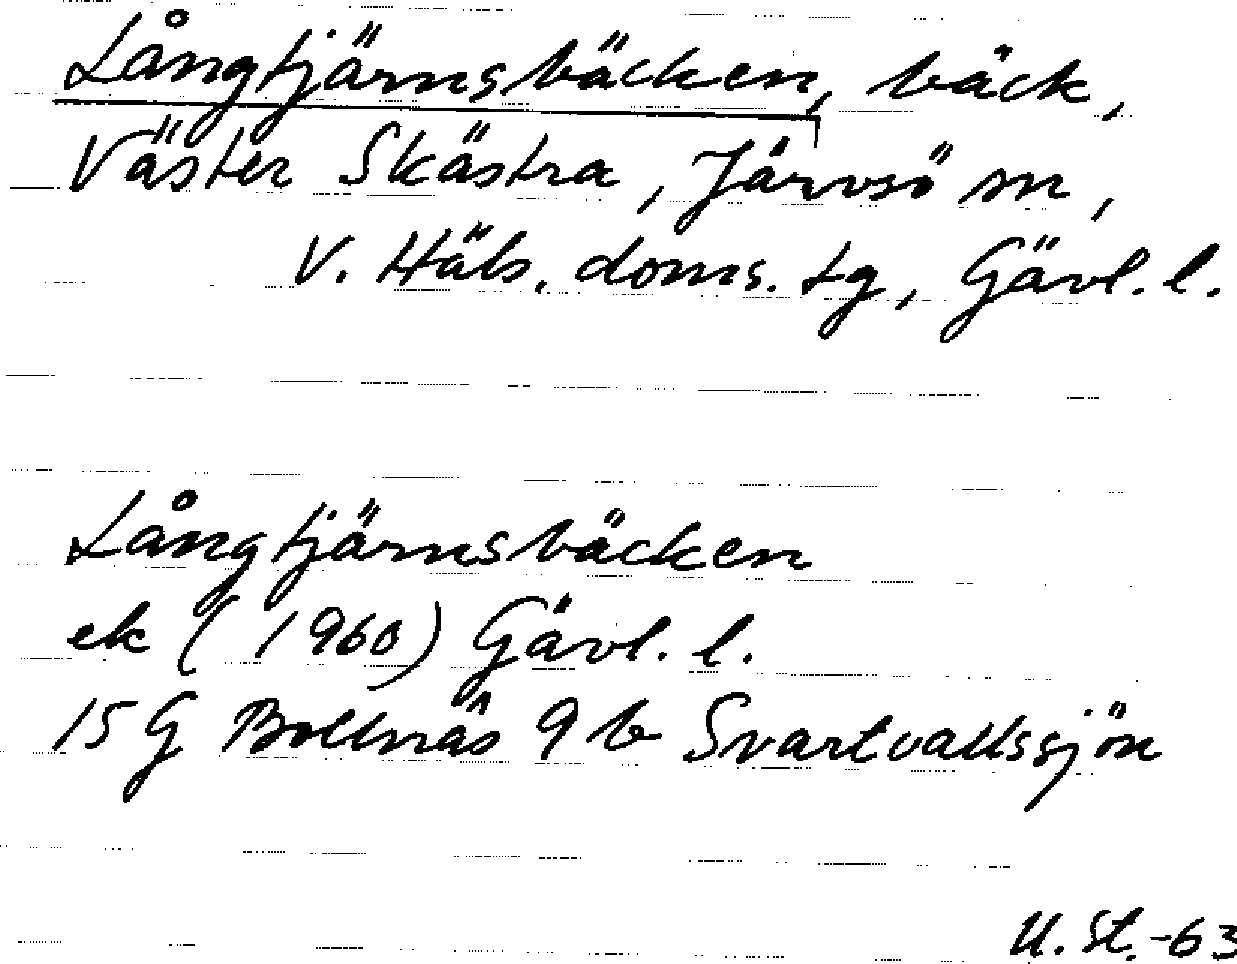 Långtjärnsbäcken, bäck,
Väster Skästra, Järvsö sn,
V. Häls. doms. tg, Gävl. l.
Långtjärnsbäcken
ek (1960) Gävl. l.
15 G Bollnäs 9 b Svartvallssjön
U. St. -63